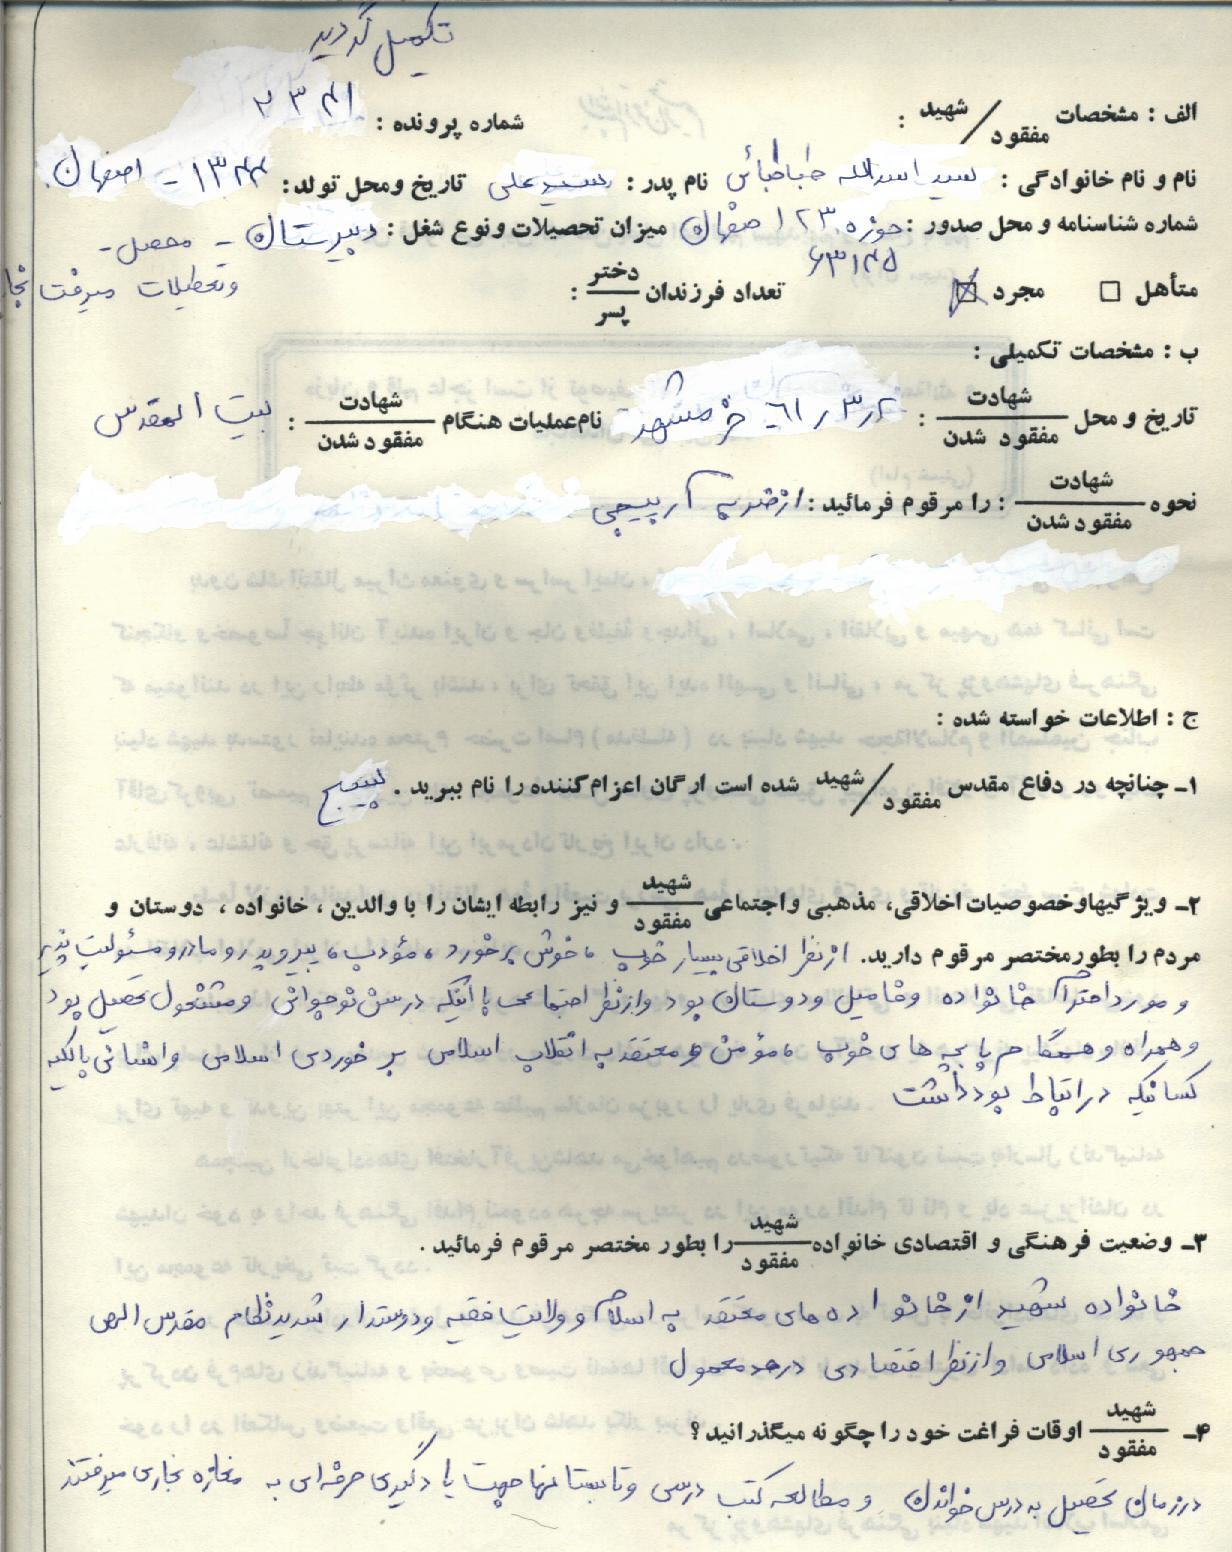 تکمیل گردید
الف : مشخصات شهید / مفقود : شماره پرونده : ۲۳۴۱
نام و نام خانوادگی : سید اسدالله طباطبائی نام پدر : سیدعلی تاریخ ومحل تولد : ۱۳۴۴ - اصفهان
شماره شناسنامه و محل صدور : حوزه ۲۳ اصفهان میزان تحصیلات ونوع شغل : دبیرستان - محصل -
۶۳۱۴۵
متأهل □ مجرد ☒ تعداد فرزندان دختر / پسر : وتعطیلات میرفت
ب : مشخصات تکمیلی :
تاریخ و محل شهادت / مفقود شدن : ۲ر۳ر۶۱ خرمشهر نام عملیات هنگام شهادت / مفقود شدن : بیت المقدس
نحوه شهادت / مفقود شدن : را مرقوم فرمائید : از ضربه آرپیجی
ج : اطلاعات خواسته شده :
۱ـ چنانچه در دفاع مقدس شهید / مفقود شده است ارگان اعزام کننده را نام ببرید . بسیج
۲ـ ویژگیهاوخصوصیات اخلاقی، مذهبی واجتماعی شهید / مفقود و نیز رابطه ایشان را با والدین ، خانواده ، دوستان و
مردم را بطور مختصر مرقوم دارید. از نظر اخلاقی بسیار خوب ، خوش برخورد ، مؤدب ، پیرو پدر و مادر و مسئولیت پذیر
و مورد احترام خانواده و فامیل و دوستان بود و از نظر اجتماعی با اینکه در سن نوجوانی و مشغول تحصیل بود
و همراه و همگام با بچه های خوب ، مؤمن و معتقد به انقلاب اسلامی برخوردی اسلامی و انسانی با کلیه
کسانیکه در ارتباط بود داشت
۳ـ وضعیت فرهنگی و اقتصادی خانواده شهید / مفقود را بطور مختصر مرقوم فرمائید .
خانواده شهید از خانواده های معتقد به اسلام و ولایت فقیه و دوستدار شدید نظام مقدس الهی
جمهوری اسلامی و از نظر اقتصادی در حد معمول
۴ـ شهید / مفقود اوقات فراغت خود را چگونه میگذرانید ؟
در زمان تحصیل به درس خواندن و مطالعه کتب درسی و تابستانها جهت یادگیری حرفه ای به مغازه نجاری میرفتند